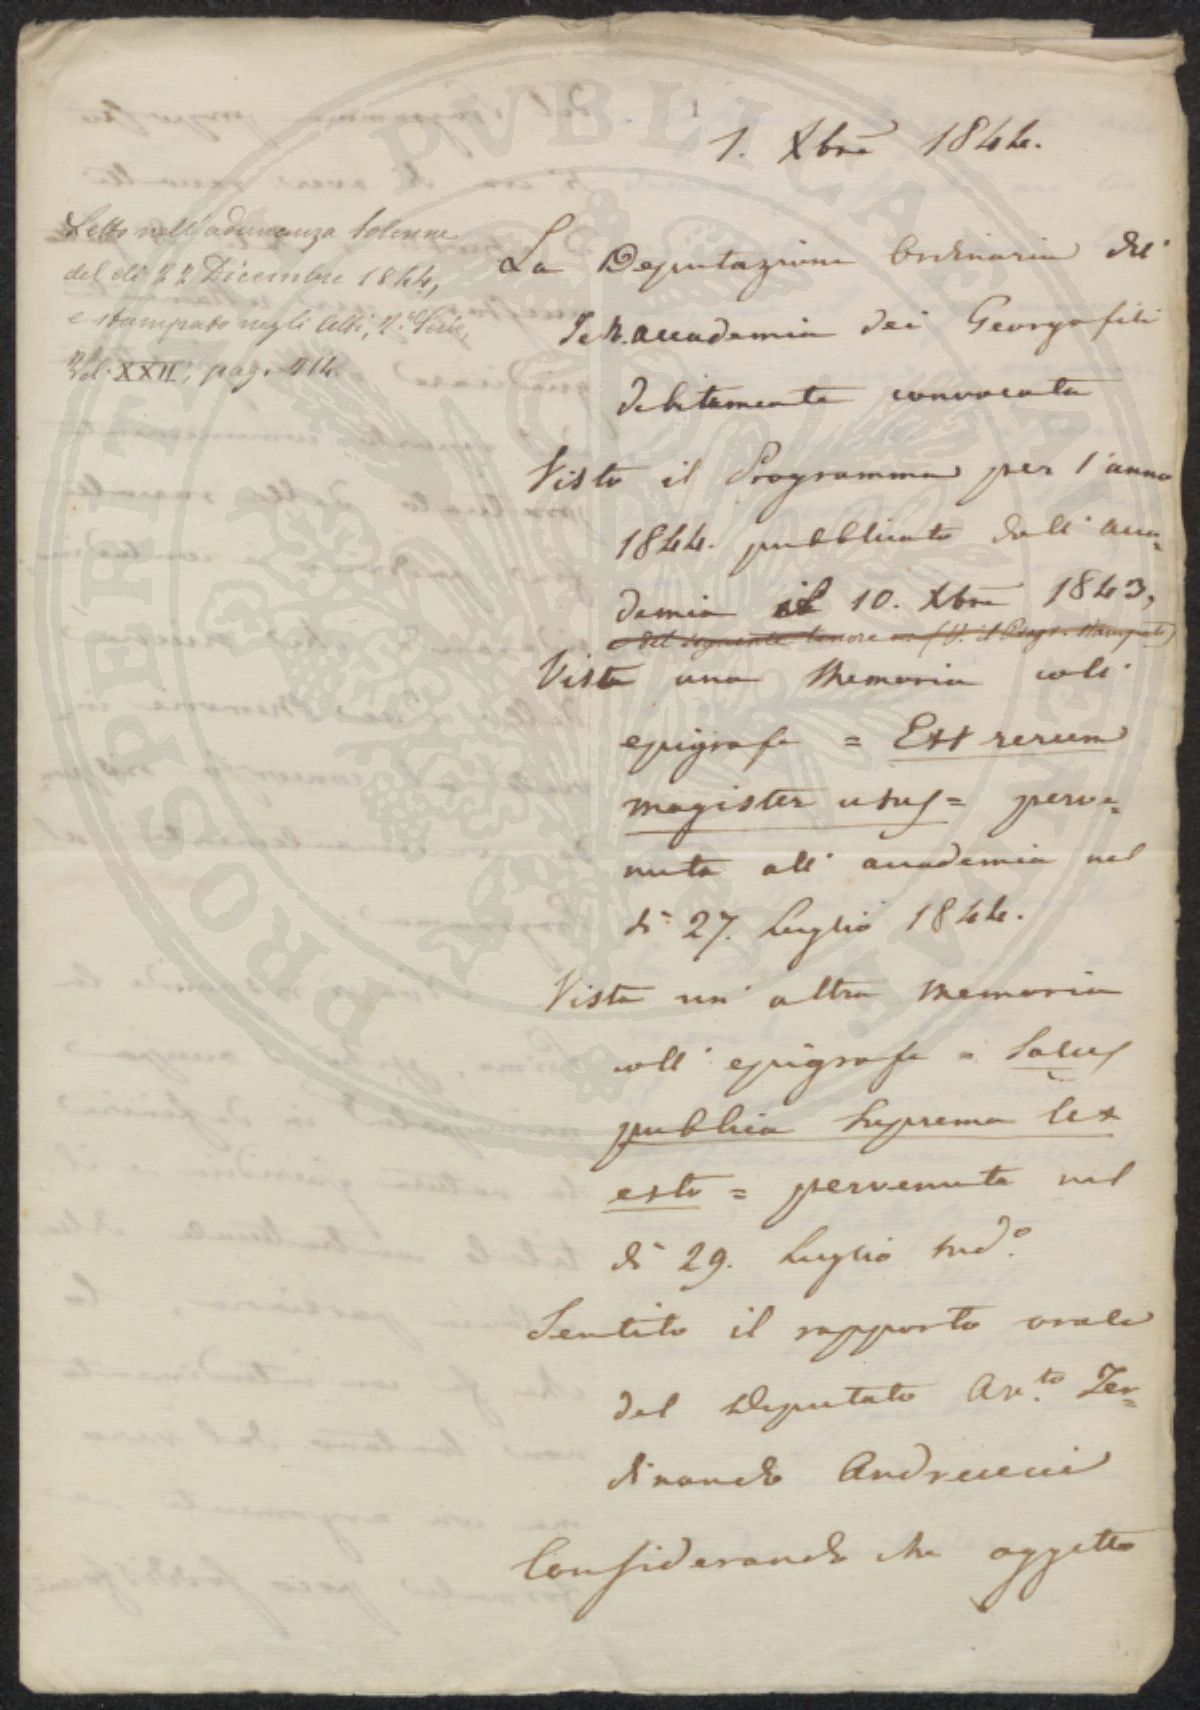 1
1. Xbrē 1844.
Letto nell'adunanza Solenne
del dì 22 Dicembre 1844,
e stampato negli Atti, 2.ª Serie,
Vol. XXII, pag. 214.
La Deputazione Ordinaria dell'
I. e R. Accademia dei Georgofili
debitamente convocata
Visto il Programma per l'anno
1844. pubblicato dall'Acca=
demia il 10. Xbrē 1843,
del seguente tenore (V. il Progr. Stampato)
Vista una Memoria coll'
epigrafe = Est rerum
magister usus = perve=
nuta all'accademia nel
dì 27. Luglio 1844.
Vista un'altra Memoria
coll'epigrafe = Salus
publica suprema lex
esto = pervenuta nel
dì 29. Luglio sud.º
Sentito il rapporto orale
del Deputato Avv.to Fer=
dinando Andreucci
Considerando che oggetto
PROSPERITATI PVBLICAE AVGENDAE